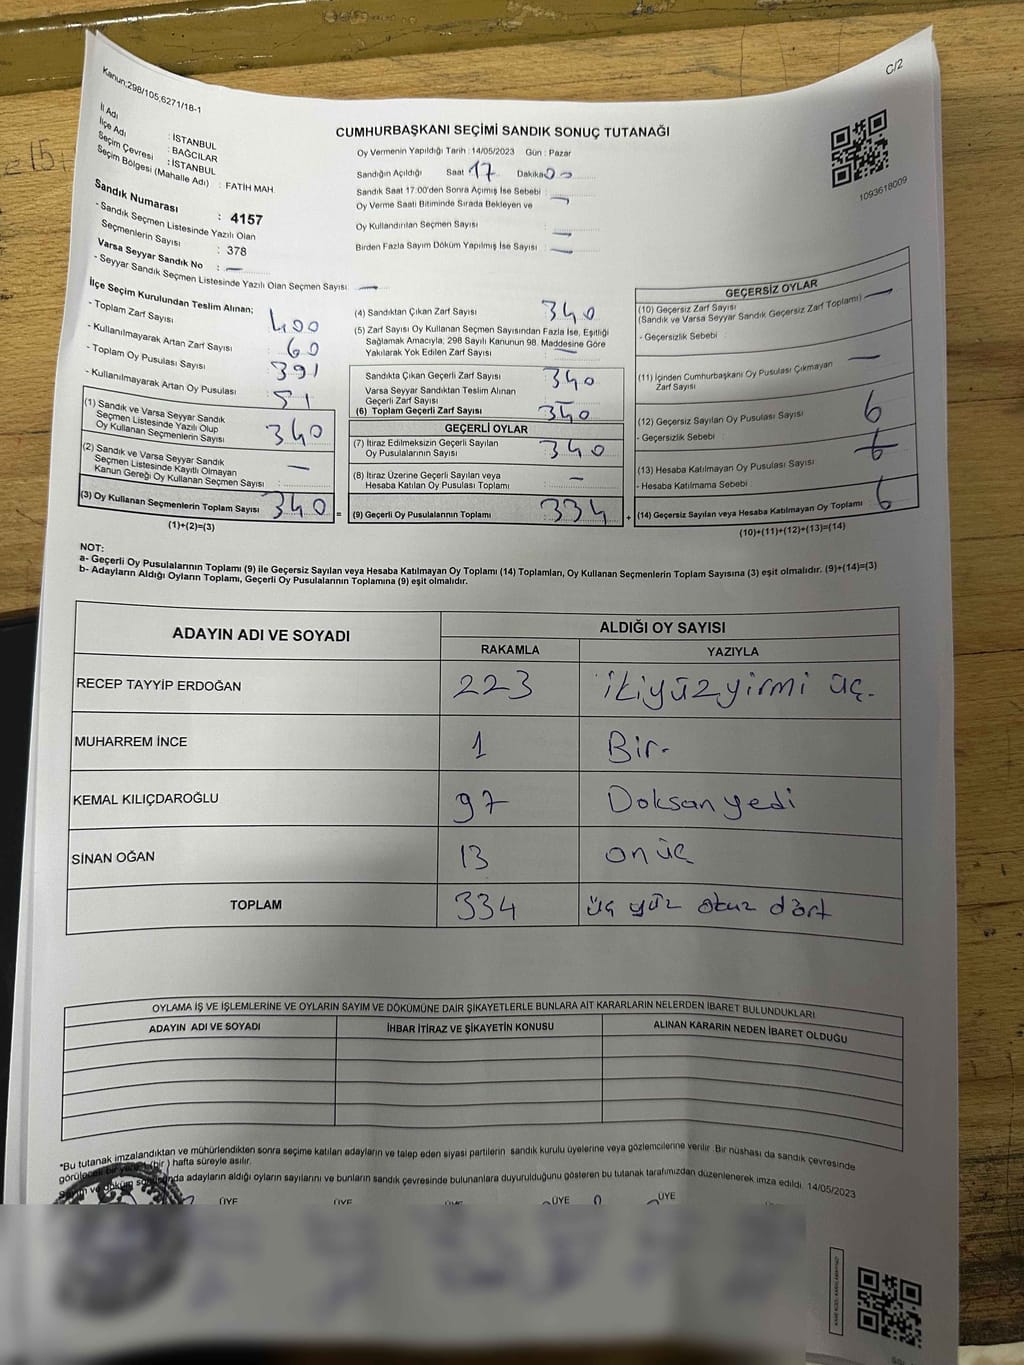 C/2
Kanun:298/105,6271/18-1
CUMHURBAŞKANI SEÇİMİ SANDIK SONUÇ TUTANAĞI
İl Adı : İSTANBUL
İlçe Adı : BAĞCILAR
Seçim Çevresi : İSTANBUL
Seçim Bölgesi (Mahalle Adı) : FATİH MAH.
Sandık Numarası : 4157
- Sandık Seçmen Listesinde Yazılı Olan
Seçmenlerin Sayısı : 378
Varsa Seyyar Sandık No : —
- Seyyar Sandık Seçmen Listesinde Yazılı Olan Seçmen Sayısı : —
Oy Vermenin Yapıldığı Tarih : 14/05/2023 Gün : Pazar
Sandığın Açıldığı Saat 17 Dakika 00
Sandık Saat 17:00'den Sonra Açımış İse Sebebi : —
Oy Verme Saati Bitiminde Sırada Bekleyen ve
Oy Kullandırılan Seçmen Sayısı : —
Birden Fazla Sayım Döküm Yapılmış İse Sayısı : —
1093618009
İlçe Seçim Kurulundan Teslim Alınan;
- Toplam Zarf Sayısı : 400
- Kullanılmayarak Artan Zarf Sayısı : 60
- Toplam Oy Pusulası Sayısı : 391
- Kullanılmayarak Artan Oy Pusulası : 51
(1) Sandık ve Varsa Seyyar Sandık
Seçmen Listesinde Yazılı Olup
Oy Kullanan Seçmenlerin Sayısı : 340
(2) Sandık ve Varsa Seyyar Sandık
Seçmen Listesinde Kayıtlı Olmayan
Kanun Gereği Oy Kullanan Seçmen Sayısı : —
(3) Oy Kullanan Seçmenlerin Toplam Sayısı : 340 =
(1)+(2)=(3)
(4) Sandıktan Çıkan Zarf Sayısı : 340
(5) Zarf Sayısı Oy Kullanan Seçmen Sayısından Fazla İse, Eşitliği
Sağlamak Amacıyla, 298 Sayılı Kanunun 98. Maddesine Göre
Yakılarak Yok Edilen Zarf Sayısı : —
Sandıkta Çıkan Geçerli Zarf Sayısı : 340
Varsa Seyyar Sandıktan Teslim Alınan
Geçerli Zarf Sayısı : —
(6) Toplam Geçerli Zarf Sayısı : 340
GEÇERLİ OYLAR
(7) İtiraz Edilmeksizin Geçerli Sayılan
Oy Pusulalarının Sayısı : 340
(8) İtiraz Üzerine Geçerli Sayılan veya
Hesaba Katılan Oy Pusulası Toplamı : —
(9) Geçerli Oy Pusulalarının Toplamı : 334 +
GEÇERSİZ OYLAR
(10) Geçersiz Zarf Sayısı
(Sandık ve Varsa Seyyar Sandık Geçersiz Zarf Toplamı) : —
- Geçersizlik Sebebi :
(11) İçinden Cumhurbaşkanı Oy Pusulası Çıkmayan
Zarf Sayısı : —
(12) Geçersiz Sayılan Oy Pusulası Sayısı : 6
- Geçersizlik Sebebi : 6
(13) Hesaba Katılmayan Oy Pusulası Sayısı :
- Hesaba Katılmama Sebebi :
(14) Geçersiz Sayılan veya Hesaba Katılmayan Oy Toplamı : 6
(10)+(11)+(12)+(13)=(14)
NOT:
a- Geçerli Oy Pusulalarının Toplamı (9) ile Geçersiz Sayılan veya Hesaba Katılmayan Oy Toplamı (14) Toplamları, Oy Kullanan Seçmenlerin Toplam Sayısına (3) eşit olmalıdır. (9)+(14)=(3)
b- Adayların Aldığı Oyların Toplamı, Geçerli Oy Pusulalarının Toplamına (9) eşit olmalıdır.
ADAYIN ADI VE SOYADI ALDIĞI OY SAYISI
RAKAMLA YAZIYLA
RECEP TAYYİP ERDOĞAN 223 ikiyüzyirmi üç.
MUHARREM İNCE 1 Bir.
KEMAL KILIÇDAROĞLU 97 Doksan yedi
SİNAN OĞAN 13 on üç
TOPLAM 334 üç yüz otuz dört
OYLAMA İŞ VE İŞLEMLERİNE VE OYLARIN SAYIM VE DÖKÜMÜNE DAİR ŞİKAYETLERLE BUNLARA AİT KARARLARIN NELERDEN İBARET BULUNDUKLARI
ADAYIN ADI VE SOYADI İHBAR İTİRAZ VE ŞİKAYETİN KONUSU ALINAN KARARIN NEDEN İBARET OLDUĞU
*Bu tutanak imzalandıktan ve mühürlendikten sonra seçime katılan adayların ve talep eden siyasi partilerin sandık kurulu üyelerine veya gözlemcilerine verilir. Bir nüshası da sandık çevresinde
görülecek bir yere (bir) hafta süreyle asılır.
Sayım ve döküm sonunda adayların aldığı oyların sayılarını ve bunların sandık çevresinde bulunanlara duyurulduğunu gösteren bu tutanak tarafımızdan düzenlenerek imza edildi. 14/05/2023
ÜYE ÜYE ÜYE ÜYE ÜYE